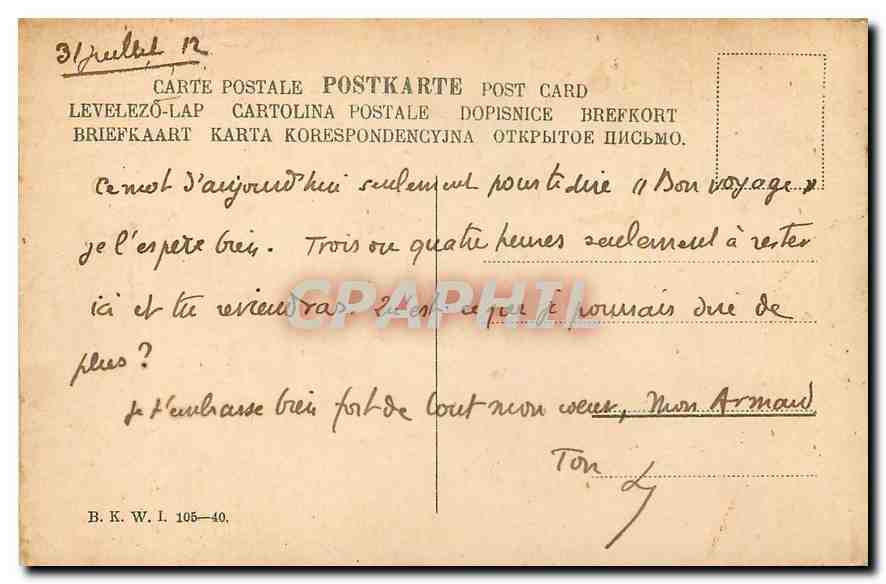 31 juillet 12
CARTE POSTALE POSTKARTE POST CARD
LEVELEZŐ-LAP CARTOLINA POSTALE DOPISNICE BREFKORT
BRIEFKAART KARTA KORESPONDENCYJNA ОТКРЫТОЕ ПИСЬМО.
Ce mot d'aujourd'hui seulement pour te dire « Bon voyage »
je l'espère bien. Trois ou quatre heures seulement à rester
ici et tu reviendras. Qu'est-ce que je pourrais dire de
plus?
je t'embrasse bien fort de tout mon coeur, Mon Armand
Ton
CPAPHIL
B. K. W. I. 105—40.